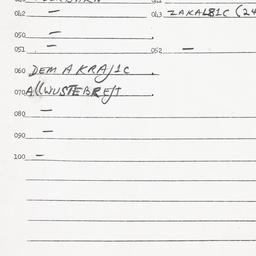 042 — 043 ZAKALB1C (24
050 —
051 — 052 —
060 DEM A KRAJ1C .
070 AllWUSTEBREST .
080 —
090 —
100 —